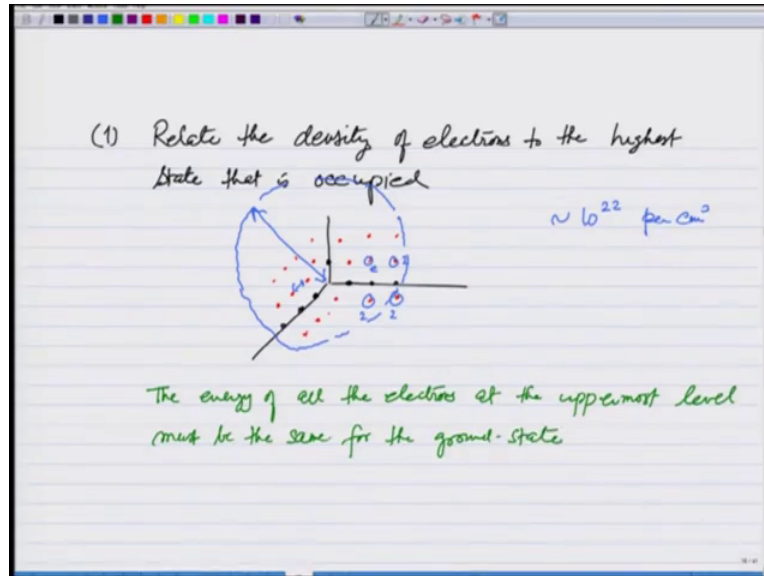 (1) Relate the density of electrons to the highest
state that is occupied
~ 10²² per cm³
2 2
2 2
The energy of all the electrons at the uppermost level
must be the same for the ground-state